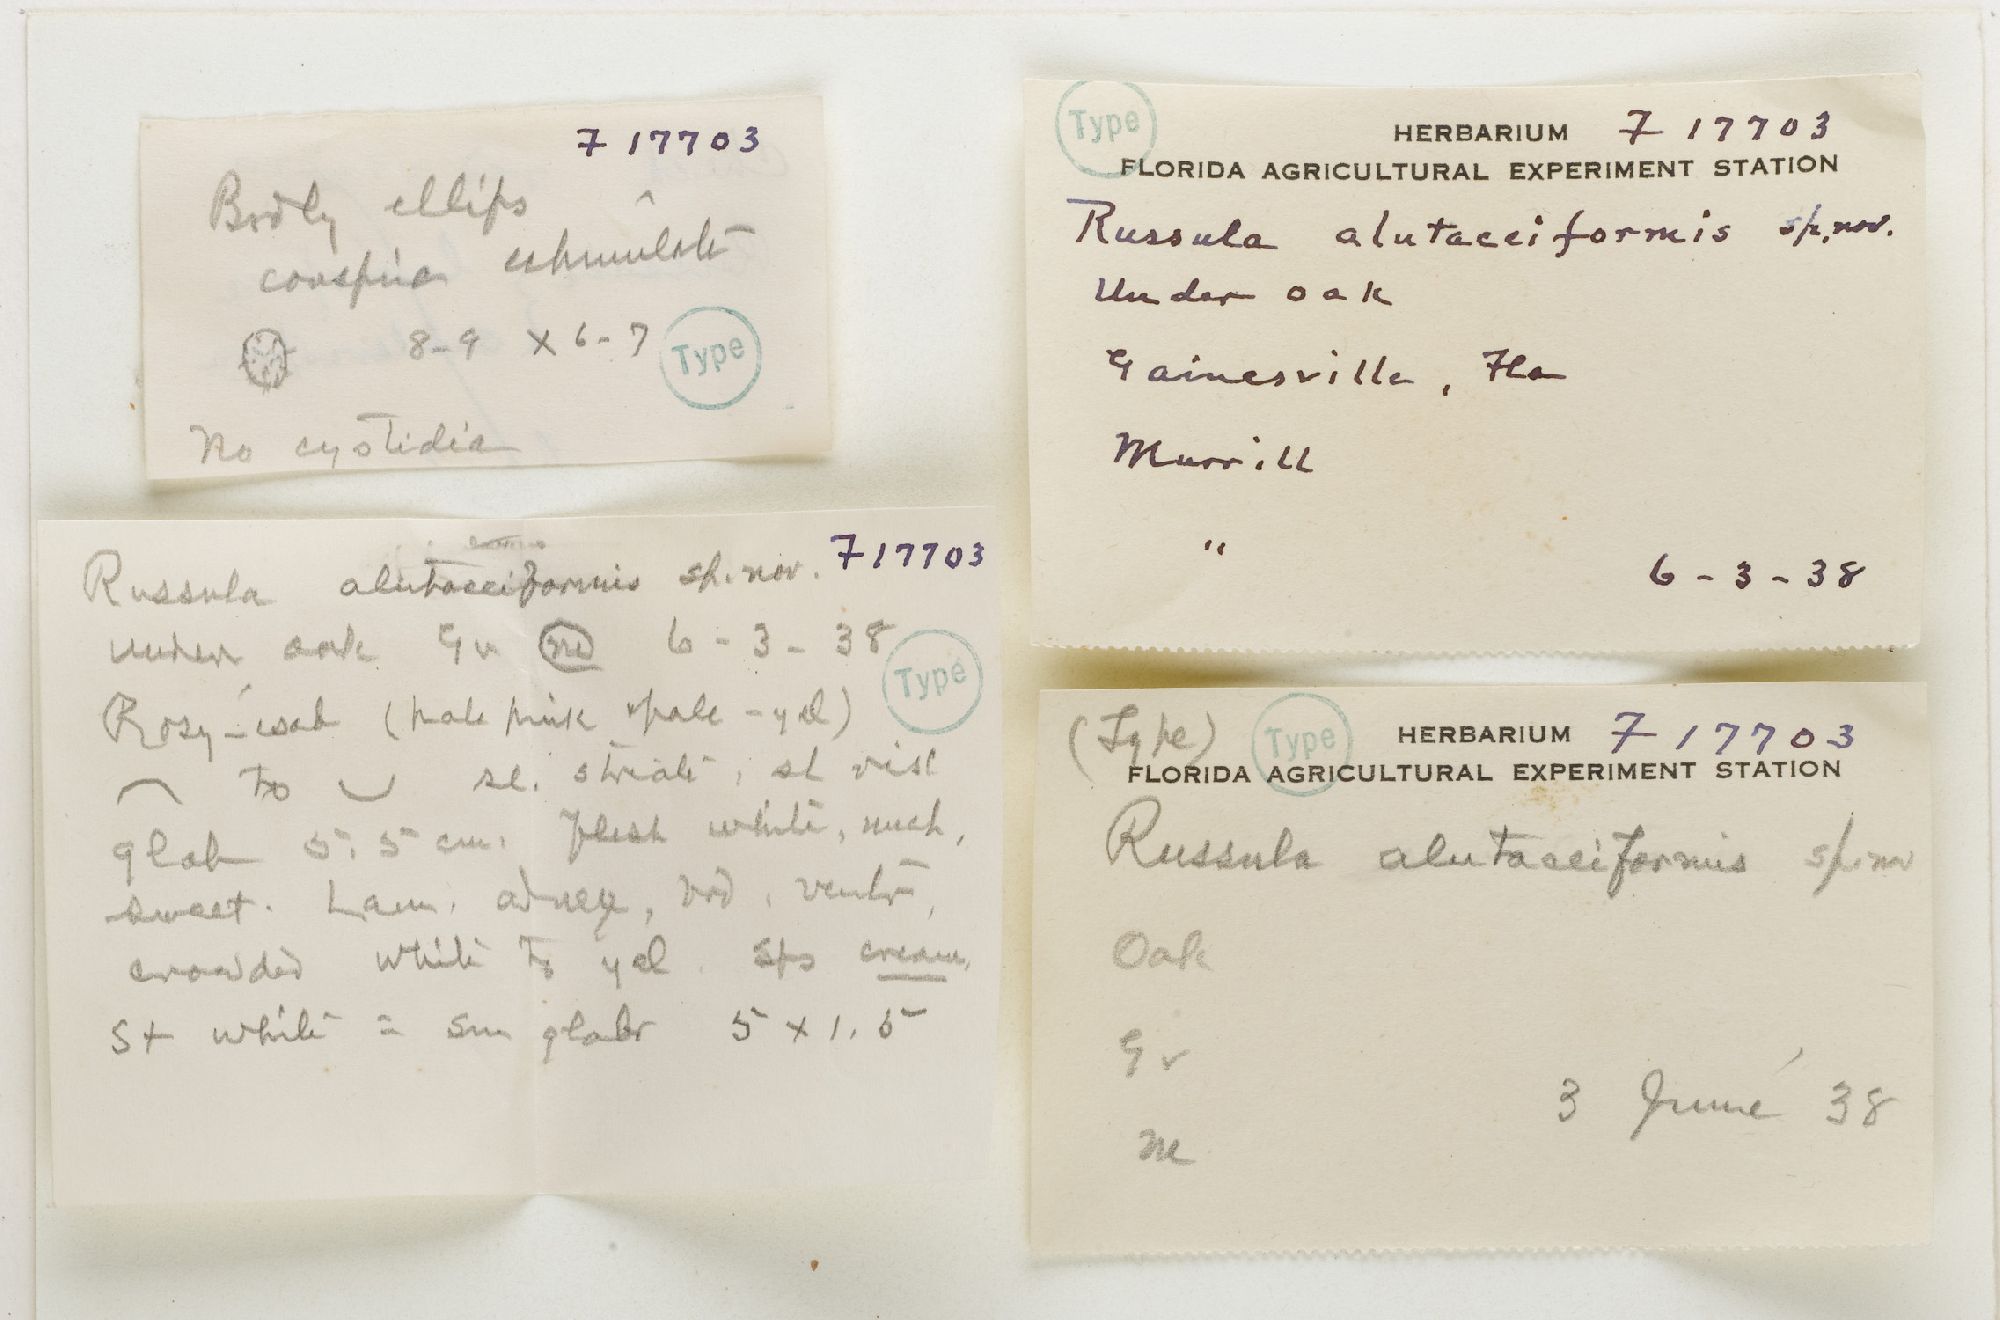 F 17703
Brdly ellips
conspic echinulate
8-9 x 6-7
Type
No cystidia
Type
HERBARIUM F 17703
FLORIDA AGRICULTURAL EXPERIMENT STATION
Russula alutaceiformis sp. nov.
Under oak
Gainesville, Fla
Murrill
"
6-3-38
F 17703
Russula alutaceiformis sp. nov.
under oak Gv me 6-3-38
Type
Rosy-isab (pale pink + pale-yel)
to sl. striate, sl visc
glab 5.5 cm. Flesh white, uuch,
sweet. Lam. adnexe, brd, ventr,
crowded white to yel. Sps cream,
St white = sm glabr 5 x 1.5
(Type) Type HERBARIUM F 17703
FLORIDA AGRICULTURAL EXPERIMENT STATION
Russula alutaceiformis sp. nov
Oak
Gv
3 June 38
me